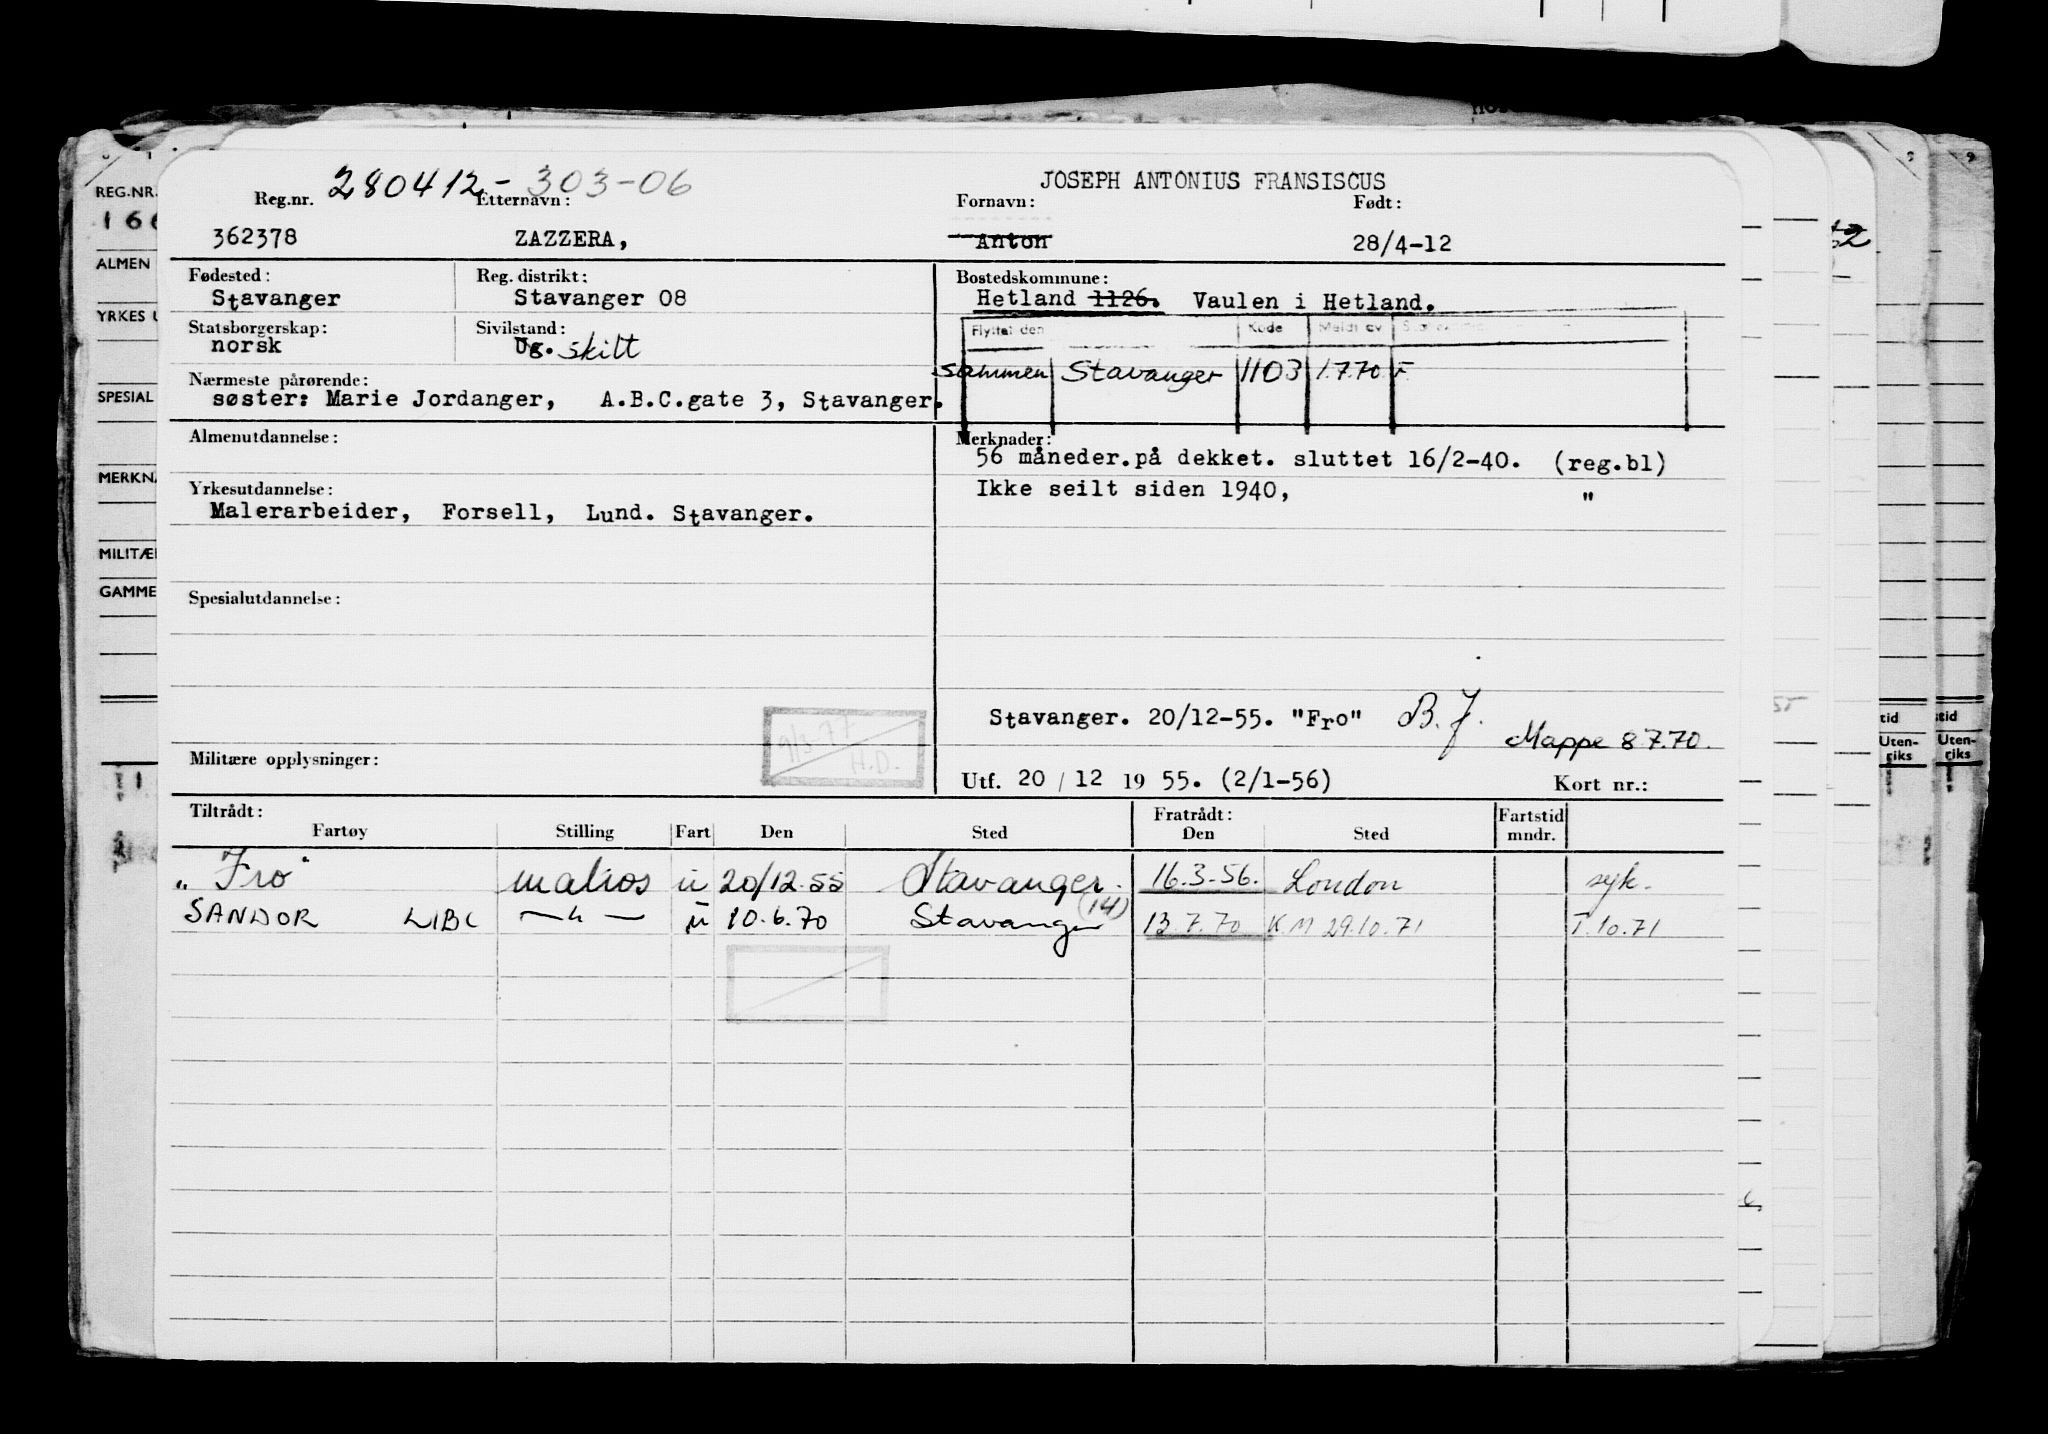 280412-303-06
JOSEPH ANTONIUS FRANSISCUS
Reg.nr. Etternavn: Fornavn: Født:
362378 ZAZZERA, Anton 28/4-12
Fødested: Reg. distrikt: Bostedskommune:
Stavanger Stavanger 08 Hetland 1126. Vaulen i Hetland.
Statsborgerskap: Sivilstand: Flyttet den Kode Meldt av
norsk Ug. skilt
sammen Stavanger 1103 1.7.70 F.
Nærmeste pårørende:
søster: Marie Jordanger, A.B.C.gate 3, Stavanger.
Almenutdannelse: Merknader:
56 måneder.på dekket. sluttet 16/2-40. (reg.bl)
Yrkesutdannelse: Ikke seilt siden 1940, "
Malerarbeider, Forsell, Lund. Stavanger.
Spesialutdannelse:
Stavanger. 20/12-55. "Fro" B.J.
9/3-77
H.D.
Mappe 8.7.70.
Militære opplysninger: Utf. 20 / 12 19 55. (2/1-56) Kort nr.:
Tiltrådt: Fratrådt: Fartstid
Fartøy Stilling Fart Den Sted Den Sted mndr.
"Fro" matros u 20/12.55 Stavanger. 16.3-56. London syk.
SANDOR LIBC —"— u 10.6.70 Stavanger (14) 13.7.70 K.M 29.10.71 T.10.71
REG.NR.
166
ALMEN
YRKES U
SPESIAL
MERKNA
MILITÆ
GAMME
tid
Uten-
riks
tid
Uten-
riks